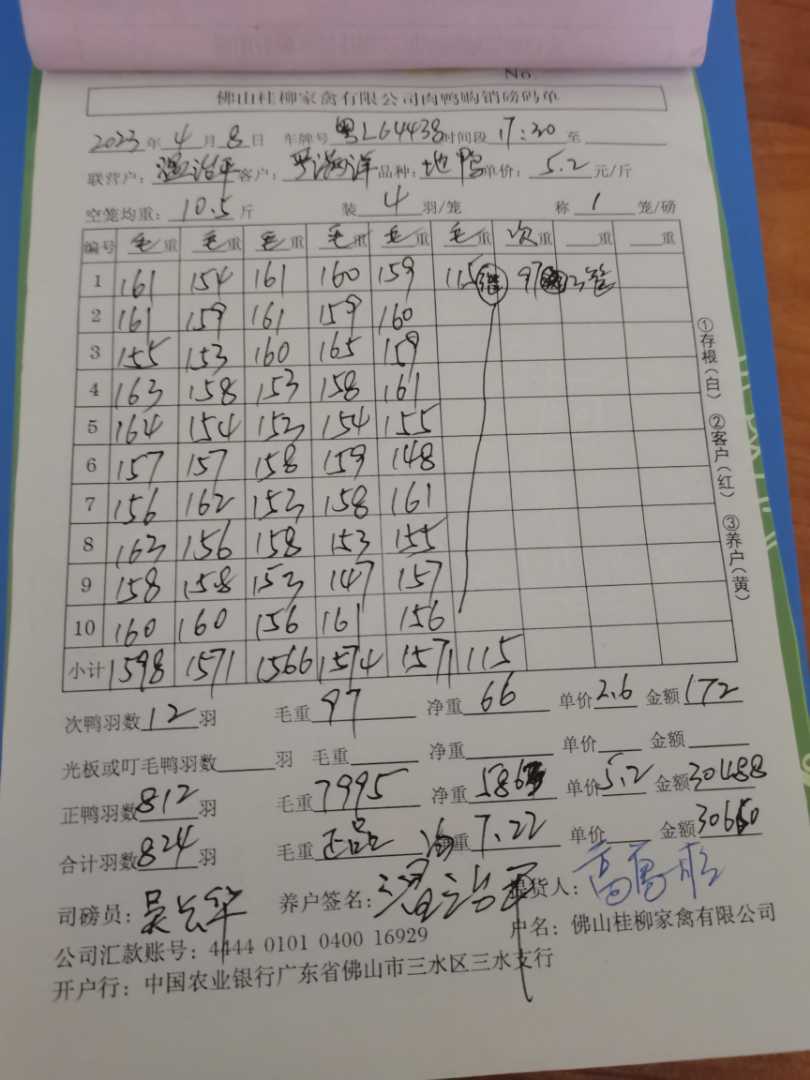 No
佛山桂柳家禽有限公司肉鸭购销磅码单
2023年4月8日 车牌号 粤L64438 时间段 17:20 至
联营户: 温治平 客户: 罗海洋 品种: 地鸭 单价: 5.2 元/斤
空笼均重: 10.5 斤 装 4 羽/笼 称 1 笼/磅
编号 毛重 毛重 毛重 毛重 毛重 毛重 次重 重 重
1 161 154 161 160 159 115 97 3笼
2 161 159 161 159 160
3 155 153 160 165 159
4 163 158 153 158 161
5 164 154 152 154 155
6 157 157 158 159 148
7 156 162 153 158 161
8 163 156 158 153 155
9 158 158 153 147 157
10 160 160 156 161 156
小计 1598 1571 1566 1574 1571 115
次鸭羽数 12 羽 毛重 97 净重 66 单价 2.6 金额 172
光板或叮毛鸭羽数 羽 毛重 净重 单价 金额
正鸭羽数 812 羽 毛重 7995 净重 5863 单价 5.2 金额 30488
合计羽数 824 羽 毛重 正品 均重 7.22 单价 金额 30660
司磅员: 养户签名: 温治平 提货人:
公司汇款账号: 4444 0101 0400 16929 户名: 佛山桂柳家禽有限公司
开户行: 中国农业银行广东省佛山市三水区三水支行
①存根(白) ②客户(红) ③养户(黄)